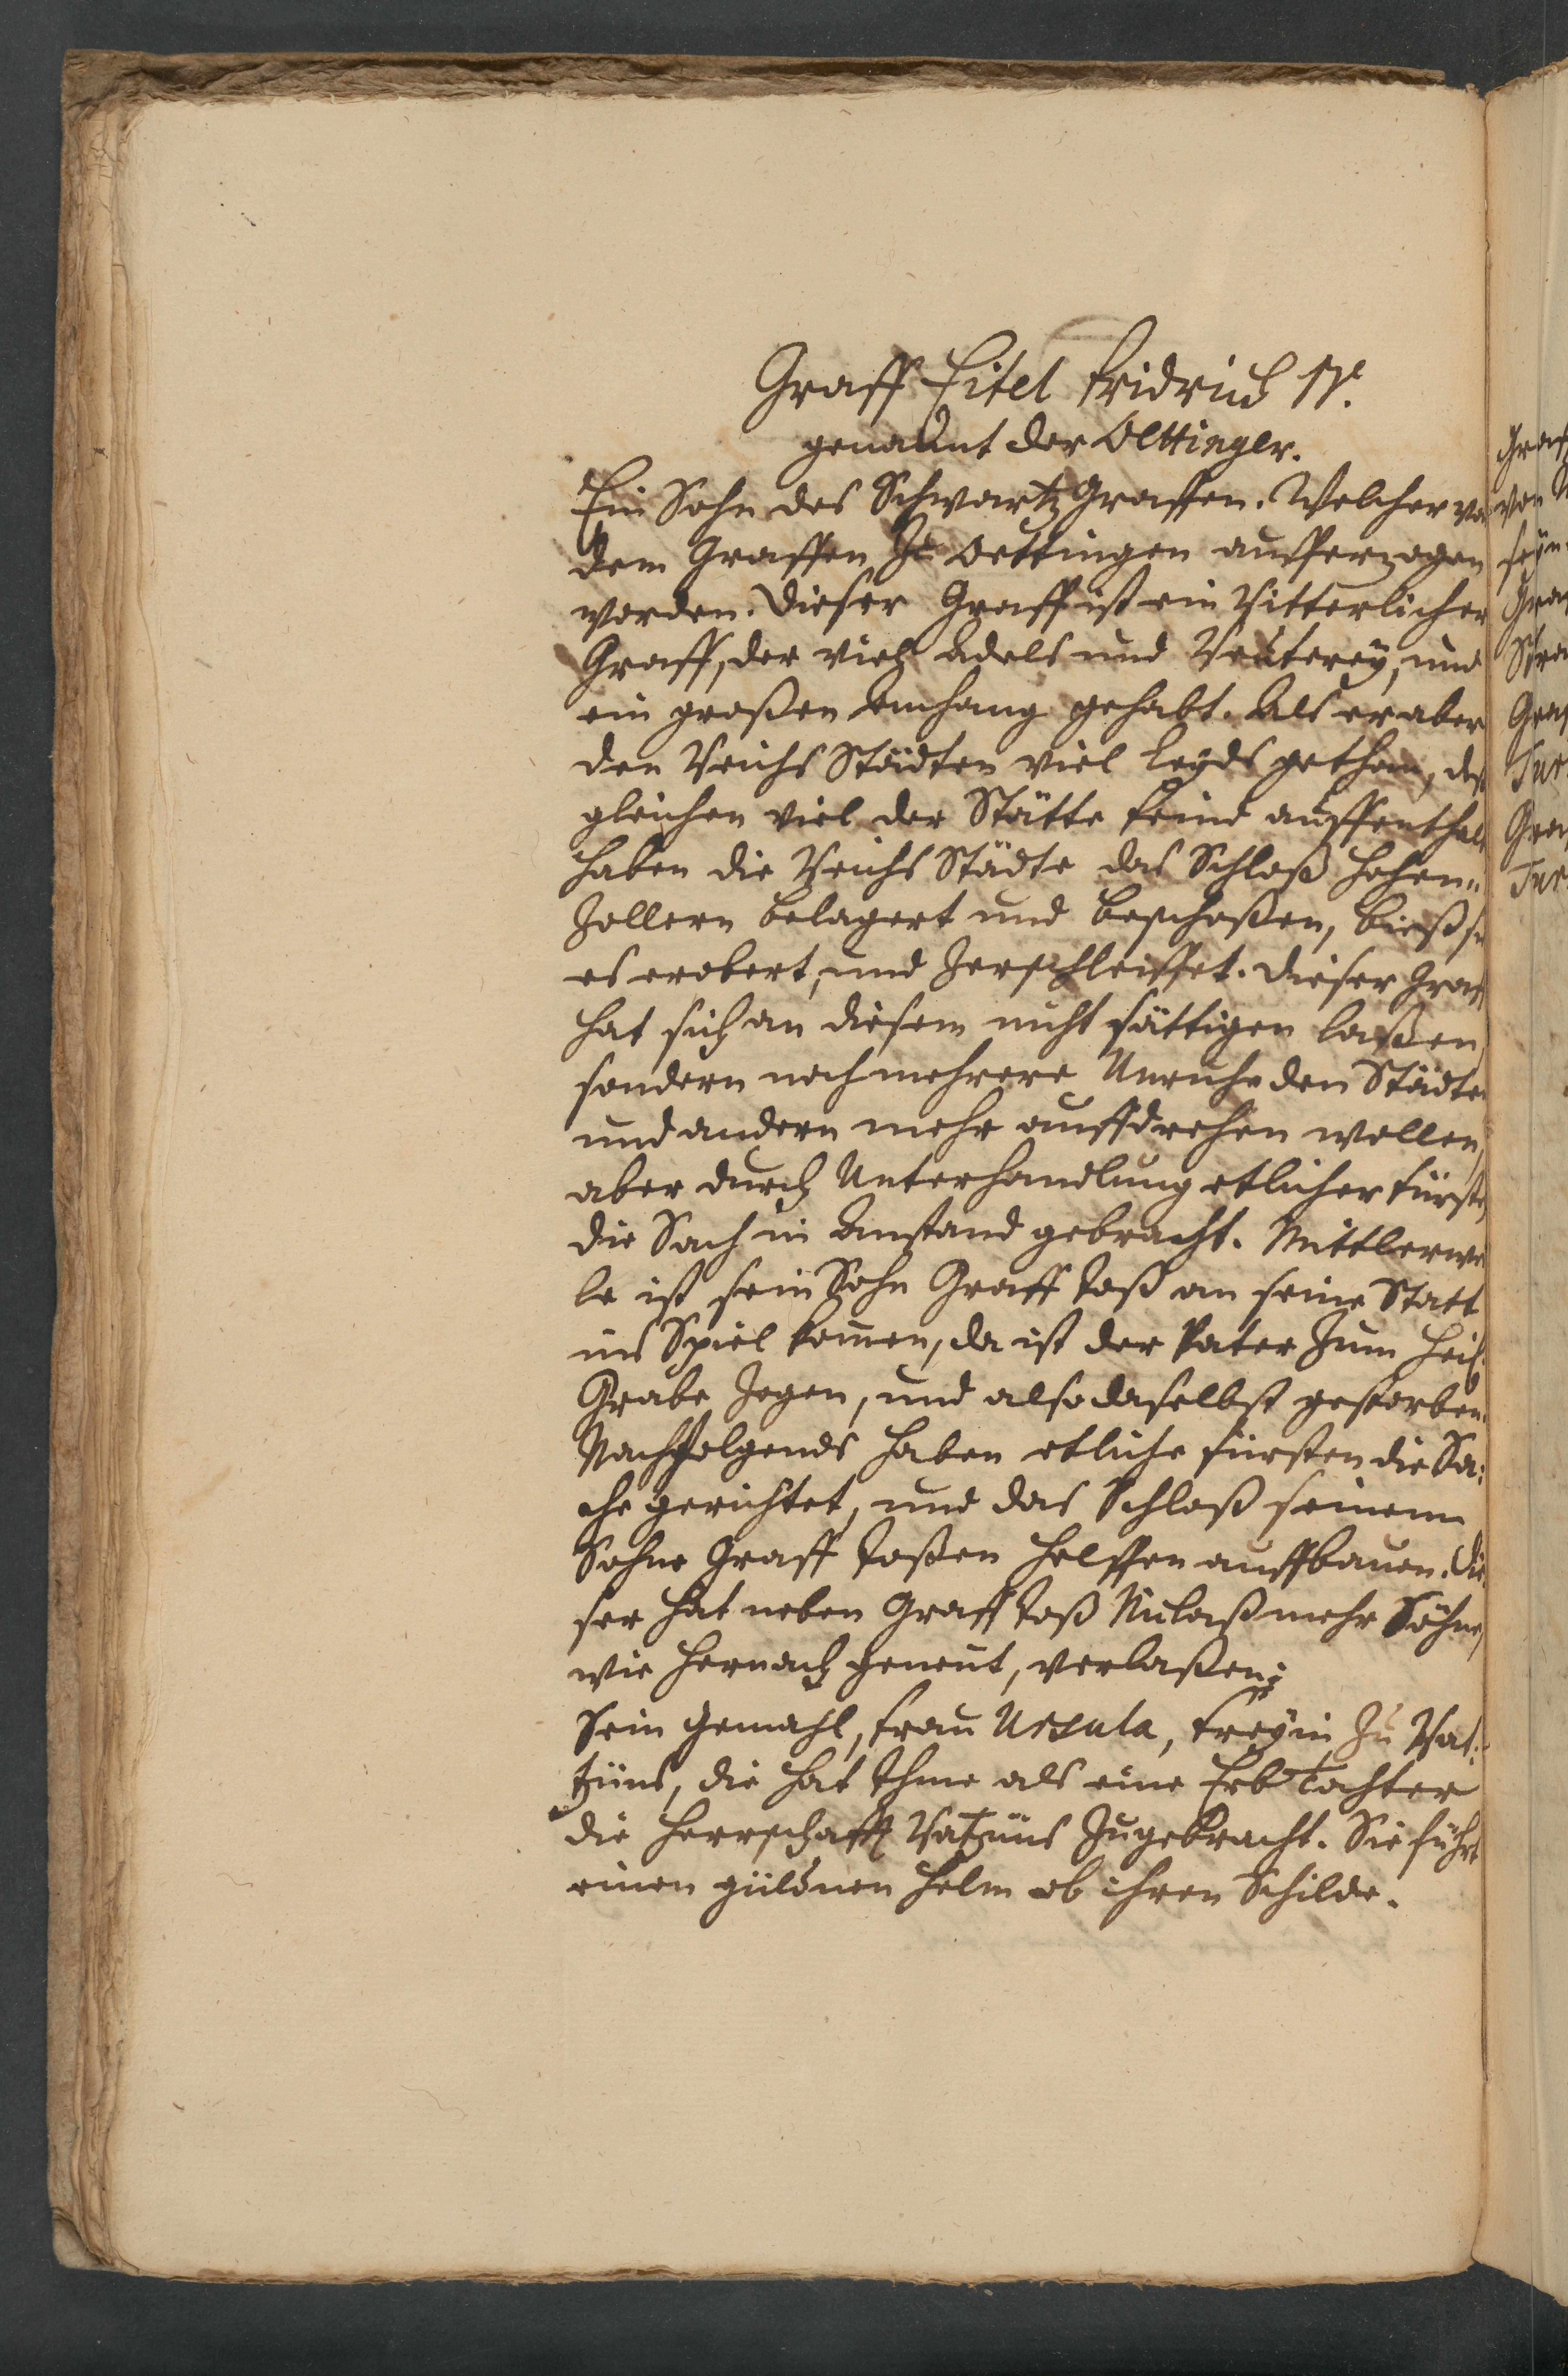 Graff Eitel Fridrich IV.
genandt der Oettinger.
Ein Sohn des Schwartz Graffen. Welcher vo
dem Graffen Zu Oettingen aufferzogen
worden. Dieser Graff ist ein Ritterlicher
Graff, der viel Adels und Reuterey, und
ein großen Anhang gehabt. Als er aber
den Reichs Städten viel leyds gethan, deß
gleichen viel der Stätte feind auffenthalt
haben die Reichs Städte das Schloß Hohen„
Zollern belagert und beschoßen, bieß si
es erobert, und Zerschleiffet. Dieser Graff
hat sich an diesem nicht sättigen laßen
sondern noch mehrere Unruhe den Städte
und andern mehr auffdrehen wollen,
aber durch Unterhandlung etlicher Fürste
die Sach in Anstand gebracht. Mittlerwe
le ist sein Sohn Graff Joß an seine Statt
ins Spiel komen, da ist der Vater Zum Heil.
Grabe Zogen, und also daselbst gestorben.
Nachfolgends haben etliche Fürsten die Sa„
che gerichtet, und das Schloß seinem
Sohne Graff Joßen helffen auffbauen. Die
ser hat neben Graff Joß Niclaß mehr Söhne,
wie hernach genent, verlaßen;
Sein Gemahl, Frau Ursula, Freyin Zu Ra„
tzüns, die hat Ihme als eine Erb Tochter
die Herrschafft Ratzüns Zugebracht. Sie führt
einen güldnen Helm ob ihren Schilde.